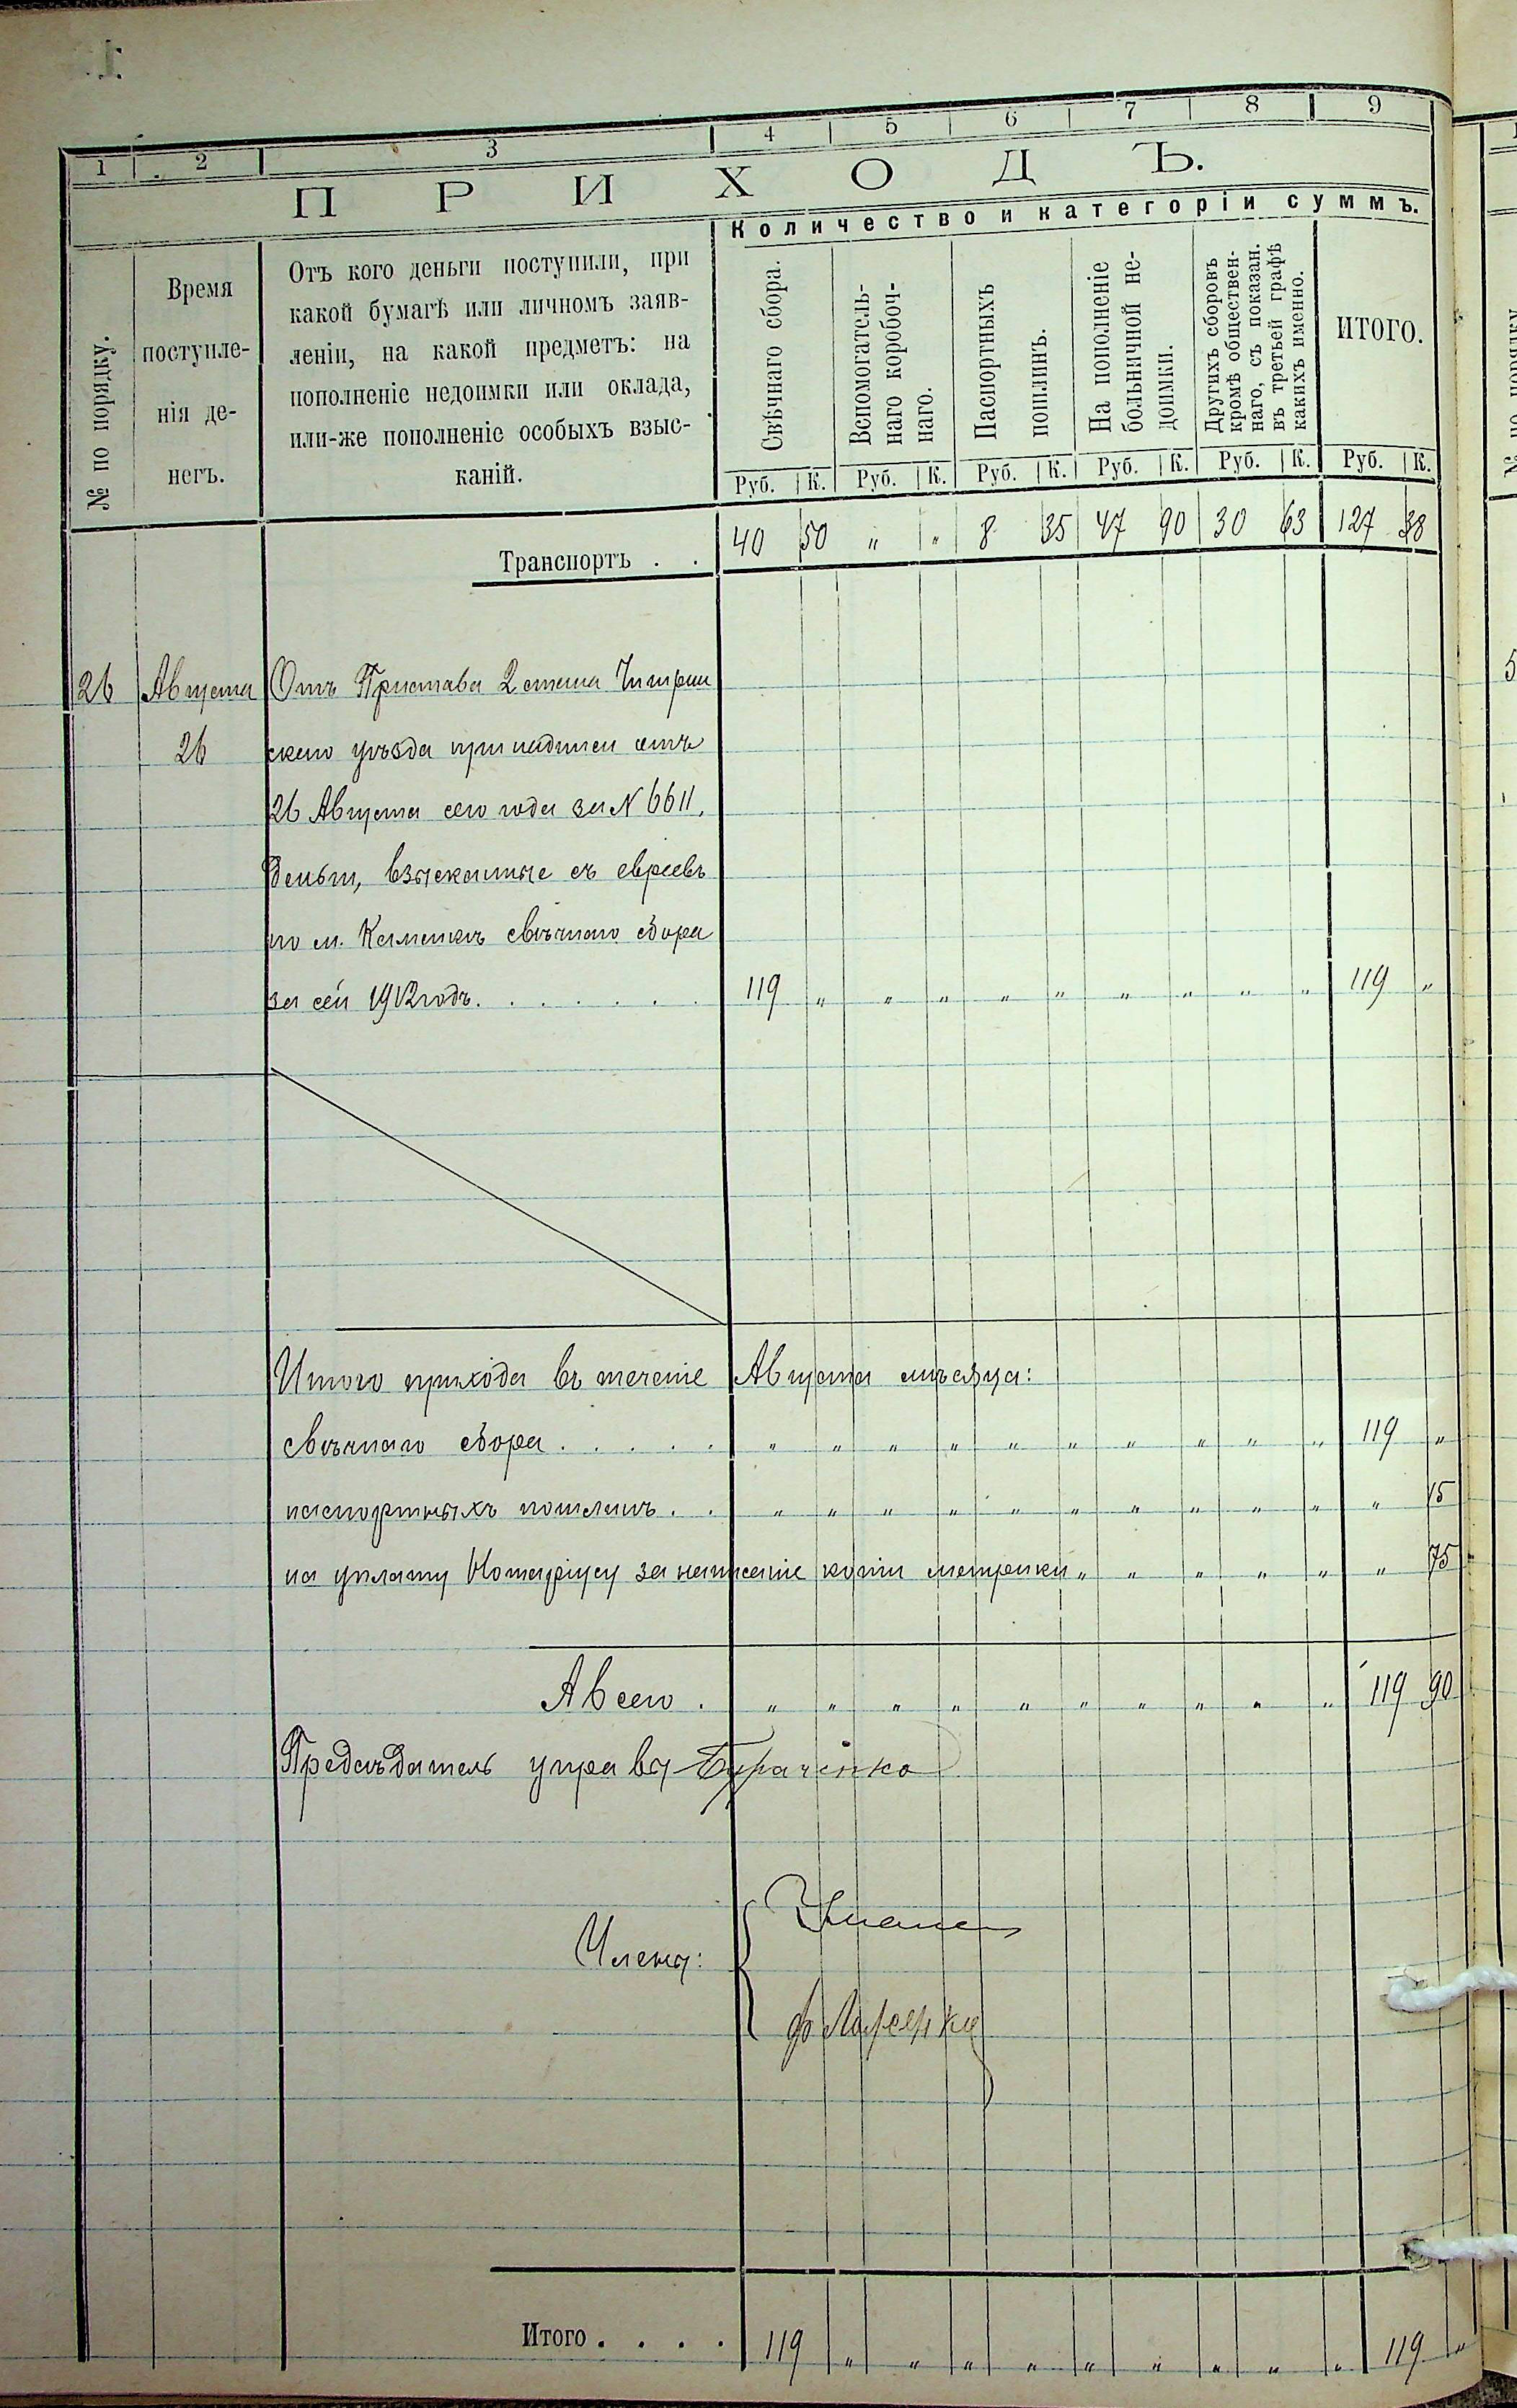 1 2 3 4 5 6 7 8 9
ПРИХОДЪ.
Количество и категоріи суммъ.
№ по порядку.
Время
поступле-
нія де-
негъ.
Отъ кого деньги поступили, при
какой бумагѣ или личномъ заяв-
леніи, на какой предметъ: на
пополненіе недоимки или оклада,
или-же пополненіе особыхъ взыс-
каній.
Свѣчнаго сбора.
Вспомогатель-
наго коробоч-
наго.
Паспортныхъ
пошлинъ.
На пополненіе
больничной не-
доимки.
Другихъ сборовъ
кромѣ обществен-
наго, съ показан.
въ третьей графѣ
какихъ именно.
ИТОГО.
Руб. К. Руб. К. Руб. К. Руб. К. Руб. К. Руб. К.
Транспортъ . . 40 50 " " 8 35 47 90 30 63 127 38
26 Августа Отъ Пристава 2 стана Чигрин
26 скаго уѣзда при надписи отъ
26 Августа сего года за N 6611,
деньги, взысканные съ евреевъ
по м. Каменкѣ свѣчнаго сбора
за сей 1912 годъ. . . . . . . 119 " " " " " " " " " 119 "
Итого прихода въ теченіе Августа мѣсяца:
свѣчнаго сбора . . . . . " " " " " " " " " " 119 "
паспортныхъ пошлинъ . . " " " " " " " " " " " 15
на уплату Нотаріусу за написаніе копіи метрики " " " " " " 75
А всего . " " " " " " " " " " 119 90
Предсѣдатель управы Бураченко
Члены:
Итого . . . . 119 " " " " " " " " " 119 "